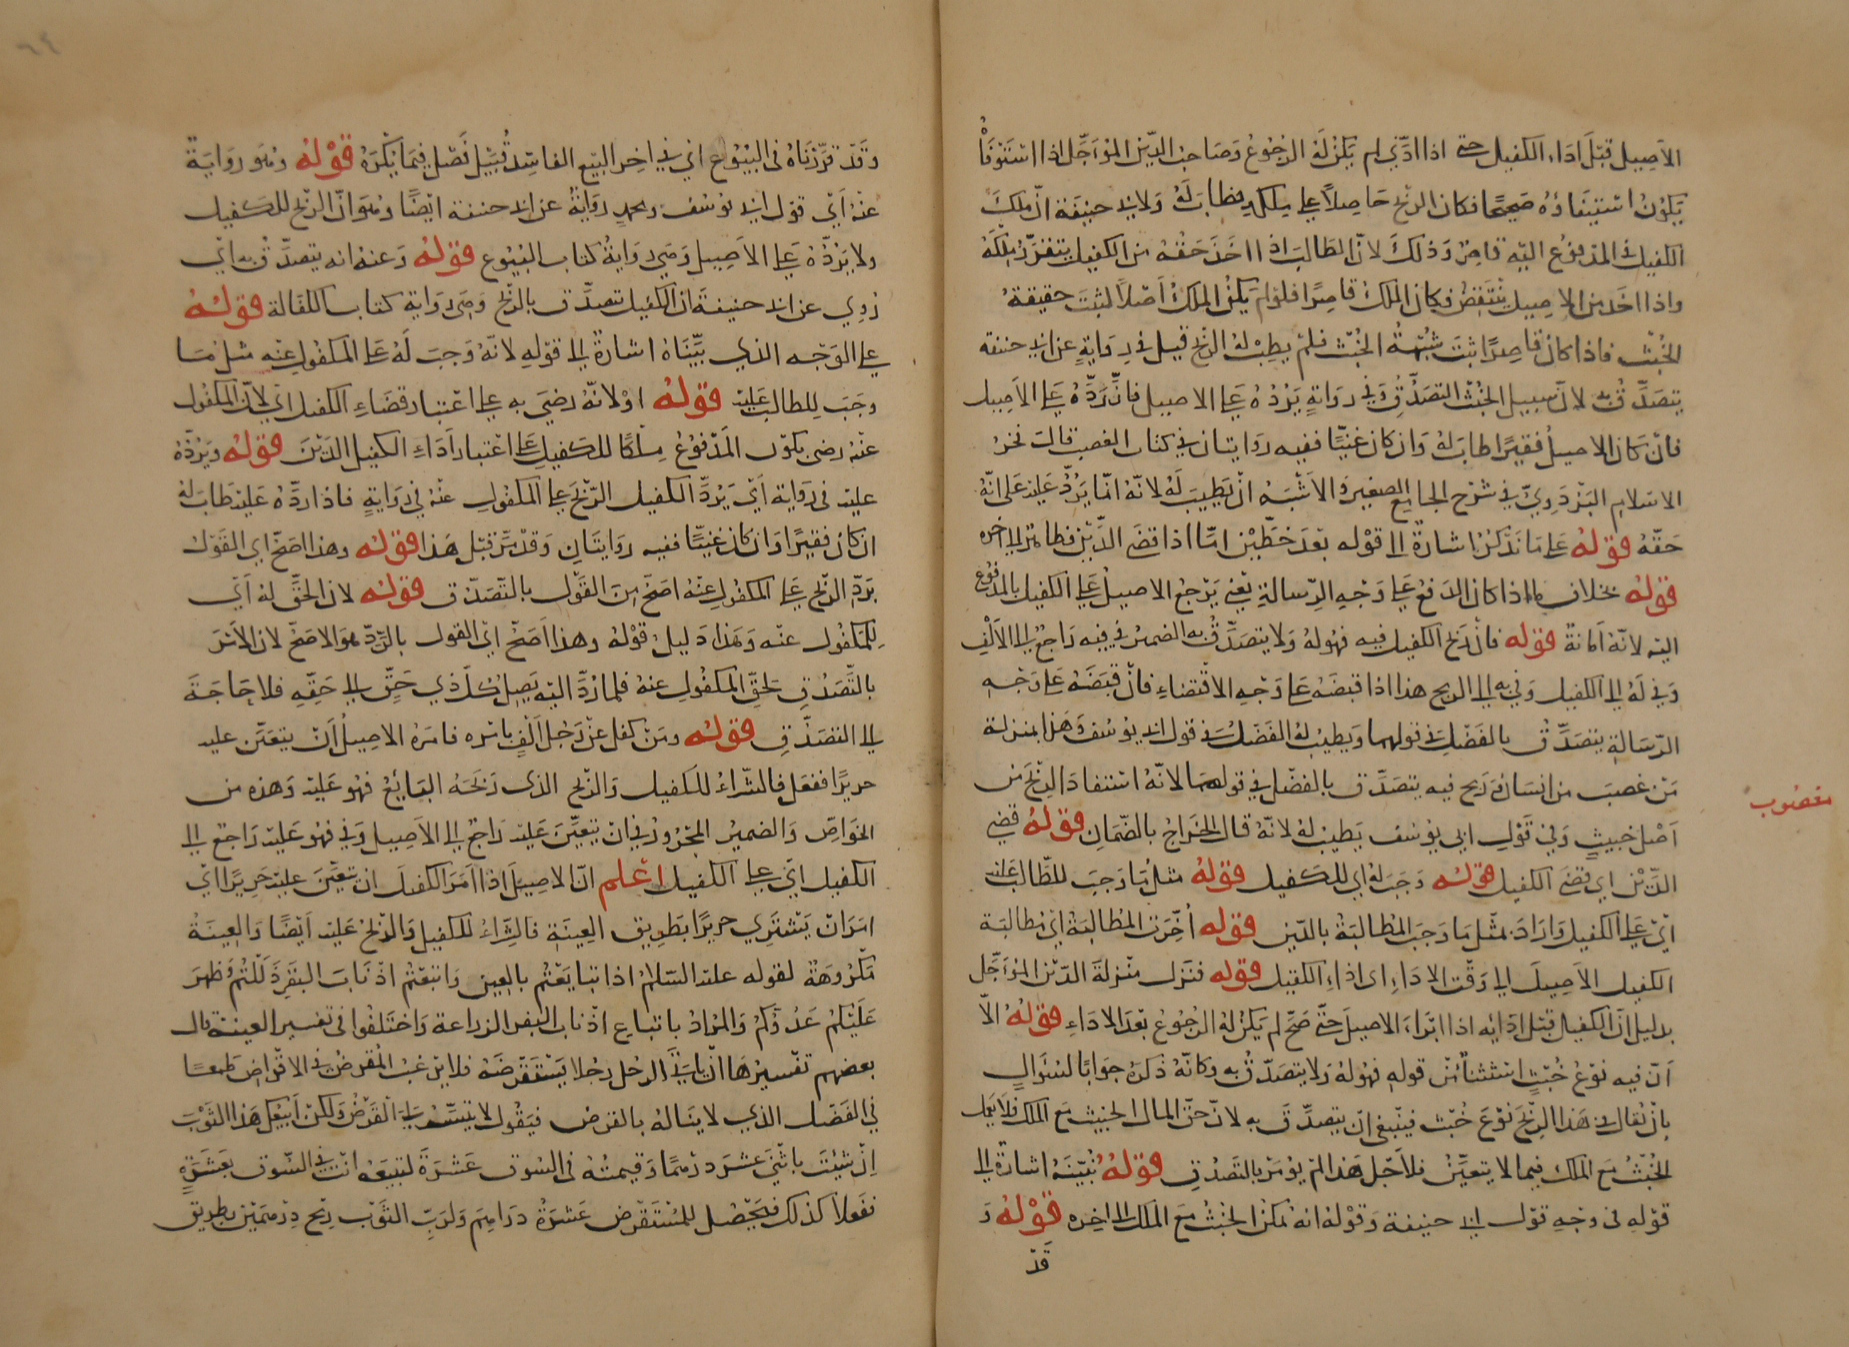 الاصيل قبل اداء الكفيل حتى اذا ادّى لم يكن له الرجوع وصاحب الدين المؤجّل اذا استوفاه
يكون استيفاؤه صحيحا فكان الربح حاصلا على ملكه فطاب له ولابي حنيفة ان ملك
الكفيل في المدفوع اليه قاصر وذلك لان الطالب اذا اخذ حقه من الكفيل يتقرر ملكه
واذا اخذ من الاصيل ينتقض فكان الملك قاصرا فلو لم يكن الملك اصلا لثبت حقيقة
الخبث فاذا كان قاصرا ثبت شبهة الخبث فلم يطب له الربح قيل في رواية عن ابي حنيفة
يتصدّق به لان سبيل الخبث التصدّق وفي رواية يردّه على الاصيل فان ردّه على الاصيل
فان كان الاصيل فقيرا طاب له وان كان غنيّا ففيه روايتان في كتاب الغصب قال فخر
الاسلام البزدوي في شرح الجامع الصغير والاشبه ان يطيب له لانه انما يردّ عليه على انه
حقه قوله على ما نذكر اشارة الى قوله بعد خطين امّا اذا قضى الدين فظاهر الى اخره
قوله بخلاف ما اذا كان الدفع على وجه الرسالة يعني يرجع الاصيل على الكفيل بالمدفوع
اليه لانه امانة قوله فان ربح الكفيل فيه فهو له ولا يتصدّق به الضمير في فيه راجع الى الالف
وفي له الى الكفيل وفي به الى الربح هذا اذا قبضه على وجه الاقتضاء فان قبضه على وجه
الرسالة يتصدّق بالفضل في قولهما ويطيب له الفضل في قول ابي يوسف وهذا بمنزلة
من غصب من انسان وربح فيه يتصدّق بالفضل في قولهما لانه استفاد الربح من
مغصوب
اصل خبيث وفي قول ابي يوسف يطيب له لانه قال الخراج بالضمان قوله قضى
الدين اي قضى الكفيل قوله وجب له اي للكفيل قوله مثل ما وجب للطالب عليه
اي على الكفيل واراد بمثل ما وجب المطالبة بالدين قوله اخّرت المطالبة اي مطالبة
الكفيل الاصيل الى وقت الاداء اي اداء الكفيل قوله فنزل منزلة الدين المؤجّل
بدليل ان الكفيل قبل ادائه اذا ابراء الاصيل حتى صح لم يكن له الرجوع بعد الاداء قوله الا
ان فيه نوع خبث استثناء من قوله فهو له ولا يتصدّق به وكانه ذكره جوابا لسؤال
بان يقال في هذا الربح نوع خبث فينبغي ان يتصدّق به لان حق المال الخبيث مع الملك فلا يعمل
الخبث مع الملك فيما لا يتعيّن فلاجل هذا لم يؤمر بالتصدق قوله بيّنه اشارة الى
قوله في وجه قول ابي حنيفة وقوله انه تمكن الخبث مع الملك الى اخره قوله و
قد
٦٤
وقد قرّرناه في البيوع اي في اخر البيع الفاسد قبيل فصل فيما يكره قوله وهو رواية
عنه اي قول ابي يوسف ومحمد رواية عن ابي حنيفة ايضا وهو ان الربح للكفيل
ولا يردّه على الاصيل وهي رواية كتاب البيوع قوله وعنه انه يتصدّق به اي
روي عن ابي حنيفة ان الكفيل تصدّق بالربح وهي رواية كتاب الكفالة قوله
على الوجه الذي بيّناه اشارة الى قوله لانه وجب له على المكفول عنه مثل ما
وجب للطالب عليه قوله او لانه رضي به على اعتبار قضاء الكفيل اي لان المكفول
عنه رضي بكون المدفوع ملكا للكفيل على اعتبار اداء الكفيل الدين قوله ويردّه
عليه في رواية اي يردّ الكفيل الربح على المكفول عنه في رواية فاذا ردّه عليه طاب له
ان كان فقيرا وان كان غنيّا ففيه روايتان وقد مرّ قبل هذا قوله وهذا اصحّ اي القول
بردّ الربح على المكفول عنه اصحّ من القول بالتصدّق قوله لان الحق له اي
للمكفول عنه وهذا دليل قوله وهذا اصحّ اي القول بالردّ هو الاصحّ لان الامر
بالتصدق لحق المكفول عنه فلما ردّ اليه يصل كل ذي حق الى حقه فلا حاجة
الى التصدّق قوله ومن كفل عن رجل الف بامره فامره الاصيل ان يتعيّن عليه
حريرا ففعل فالشراء للكفيل والربح الذي ربحه البائع فهو عليه وهذه من
الخواص والضمير المجرور في ان يتعيّن عليه راجع الى الاصيل وفي فهو عليه راجع الى
الكفيل اي على الكفيل اعلم ان الاصيل اذا امر الكفيل ان يتعيّن عليه حريرا اي
امر ان يشتري حريرا بطريق العينة فالشراء للكفيل والربح عليه ايضا والعينة
مكروهة لقوله عليه السلام اذا تبايعتم بالعين واتبعتم اذناب البقر ذللتم وظهر
عليكم عدوكم والمراد باتباع اذناب البقر الزراعة واختلفوا في تفسير العينة قال
بعضهم تفسيرها ان يأتي الرجل رجلا يستقرضه فلا يرغب المقرض في الاقراض طمعا
في الفضل الذي لا يناله بالقرض فيقول لا يتيسّر لي القرض ولكن ابيعك هذا الثوب
ان شئت باثني عشر درهما وقيمته في السوق عشرة لتبيعه انت في السوق بعشرة
ففعلا كذلك فيحصل للمستقرض عشرة دراهم ولربّ الثوب ربح درهمين بطريق